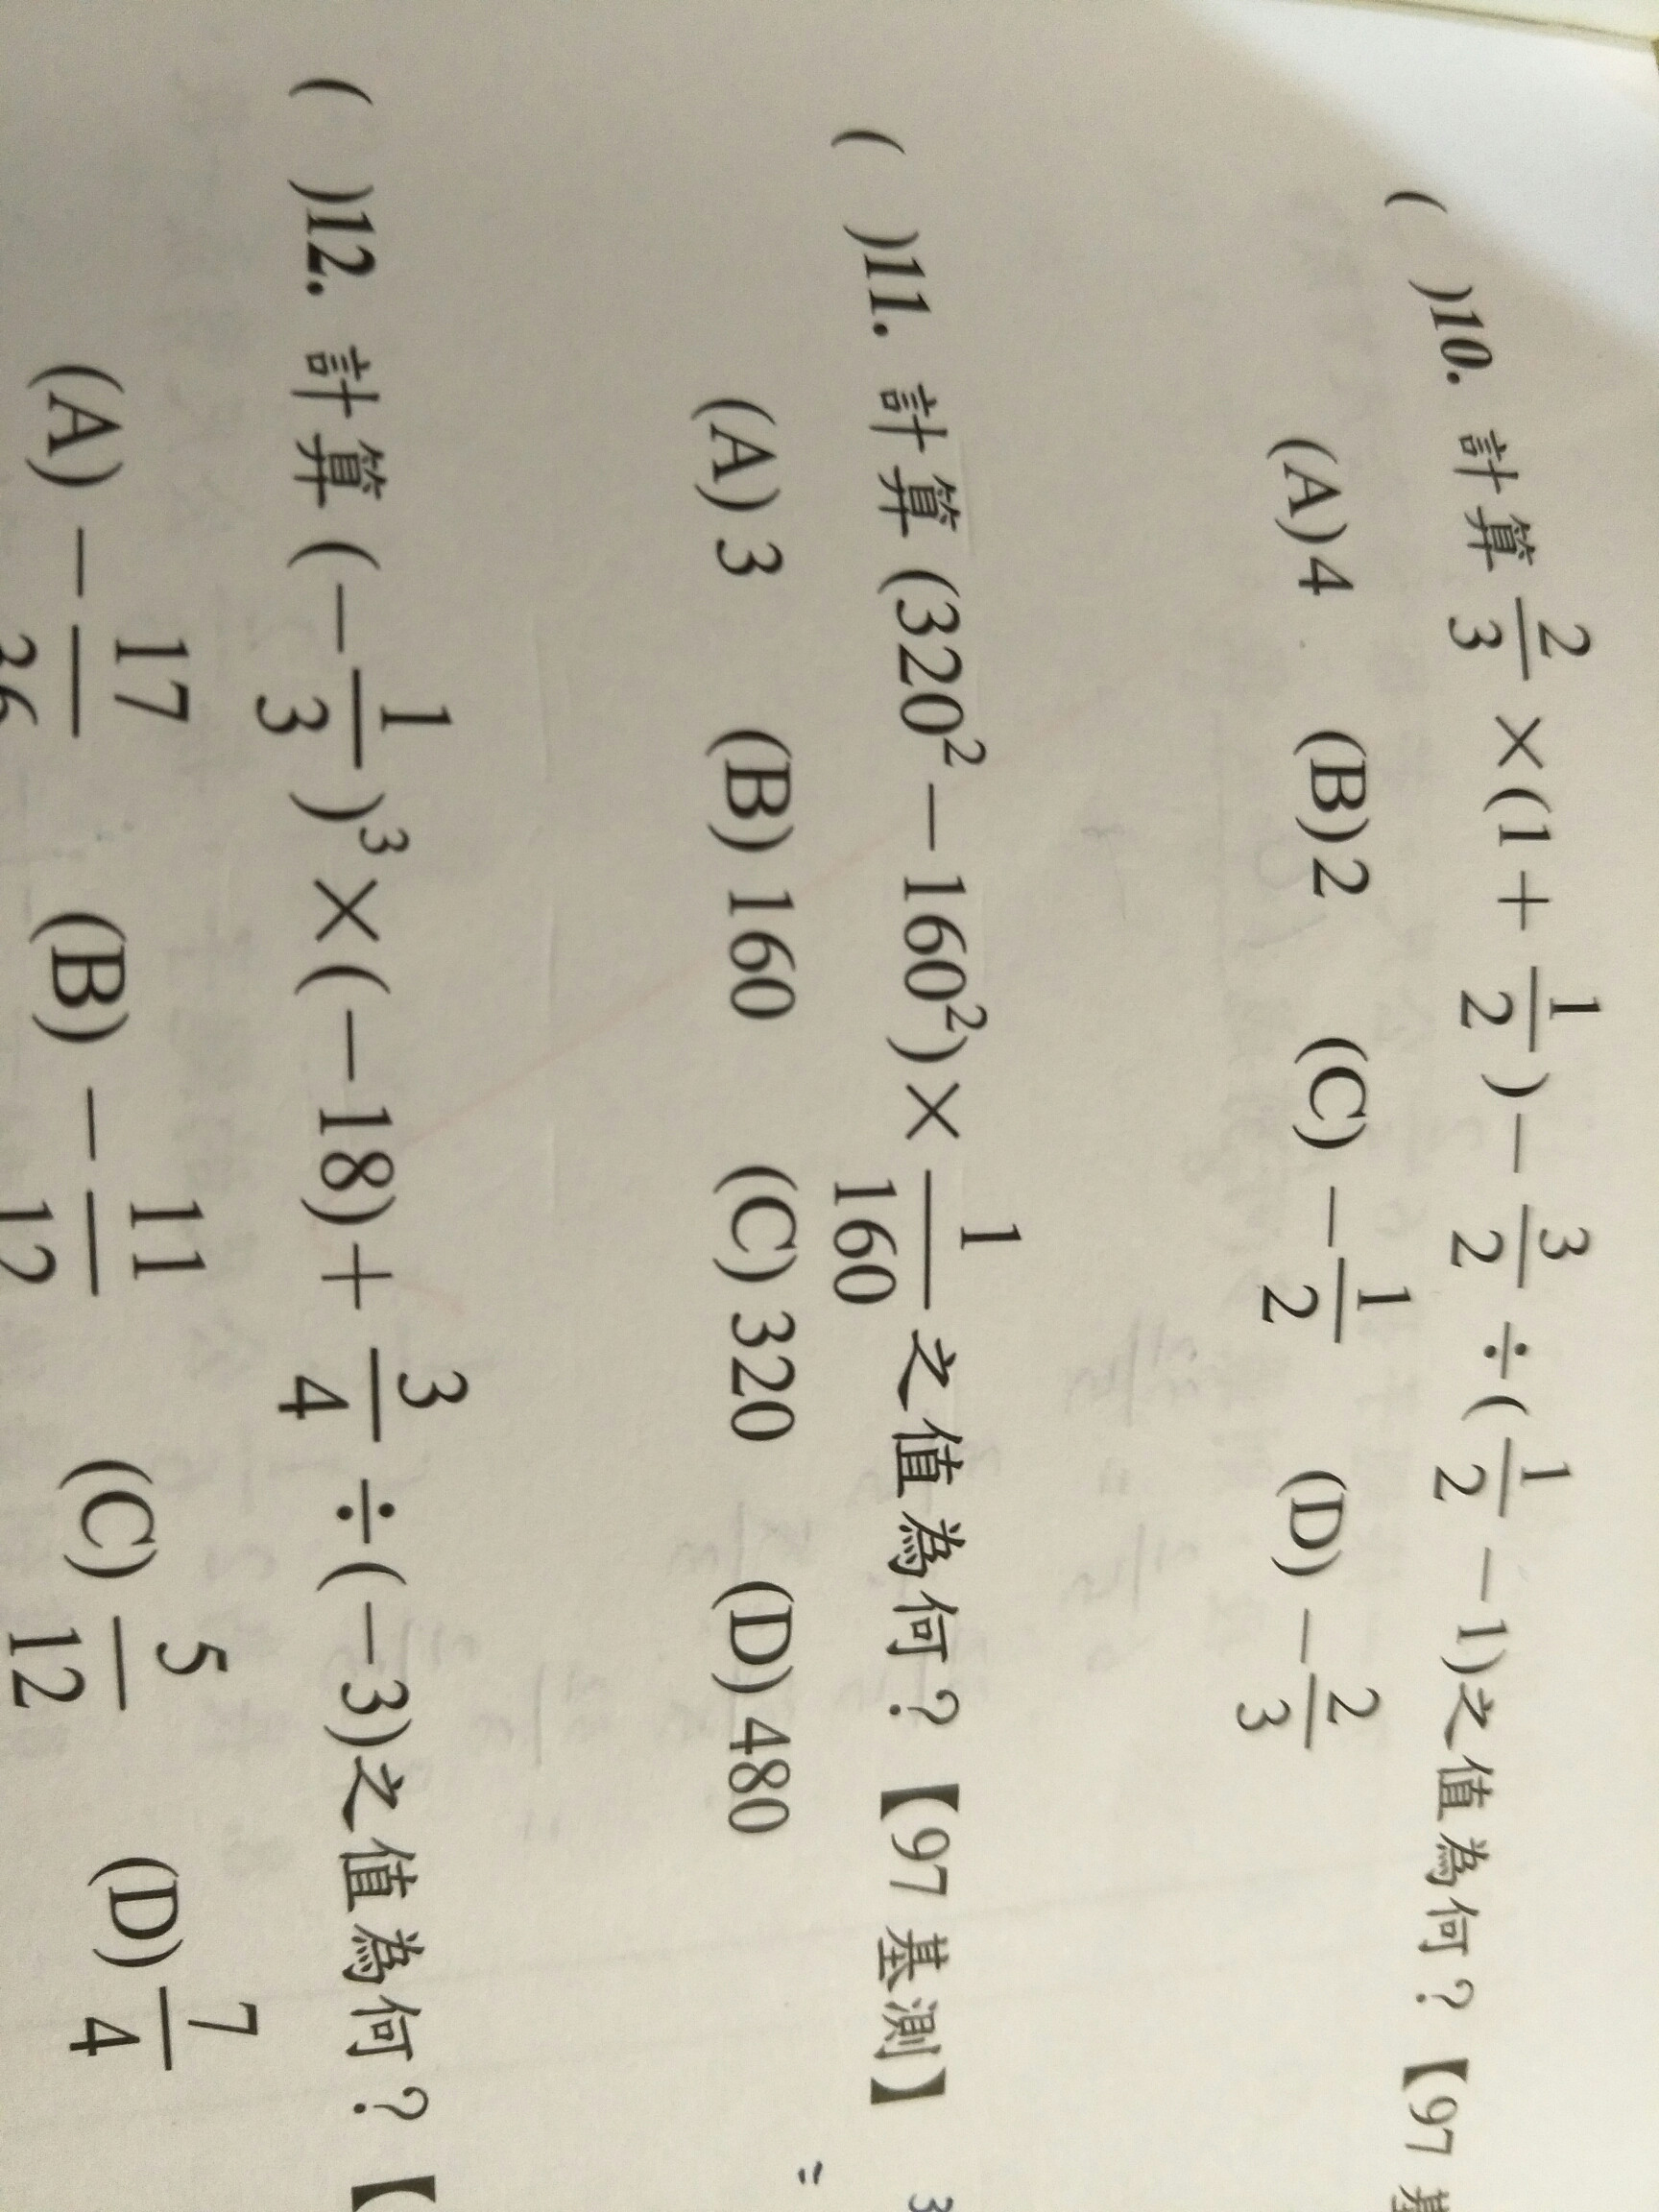 ( )10. 計算 2/3 ×(1+ 1/2 )− 3/2 ÷( 1/2 −1)之值為何？【97 基
(A)4 (B)2 (C) −1/2 (D) −2/3
( )11. 計算 (320²−160²)× 1/160 之值為何？【97 基測】
(A) 3 (B) 160 (C) 320 (D) 480
( )12. 計算 (−1/3)³×(−18)+ 3/4 ÷(−3)之值為何？【
(A) −17/36 (B) −11/12 (C) 5/12 (D) 7/4